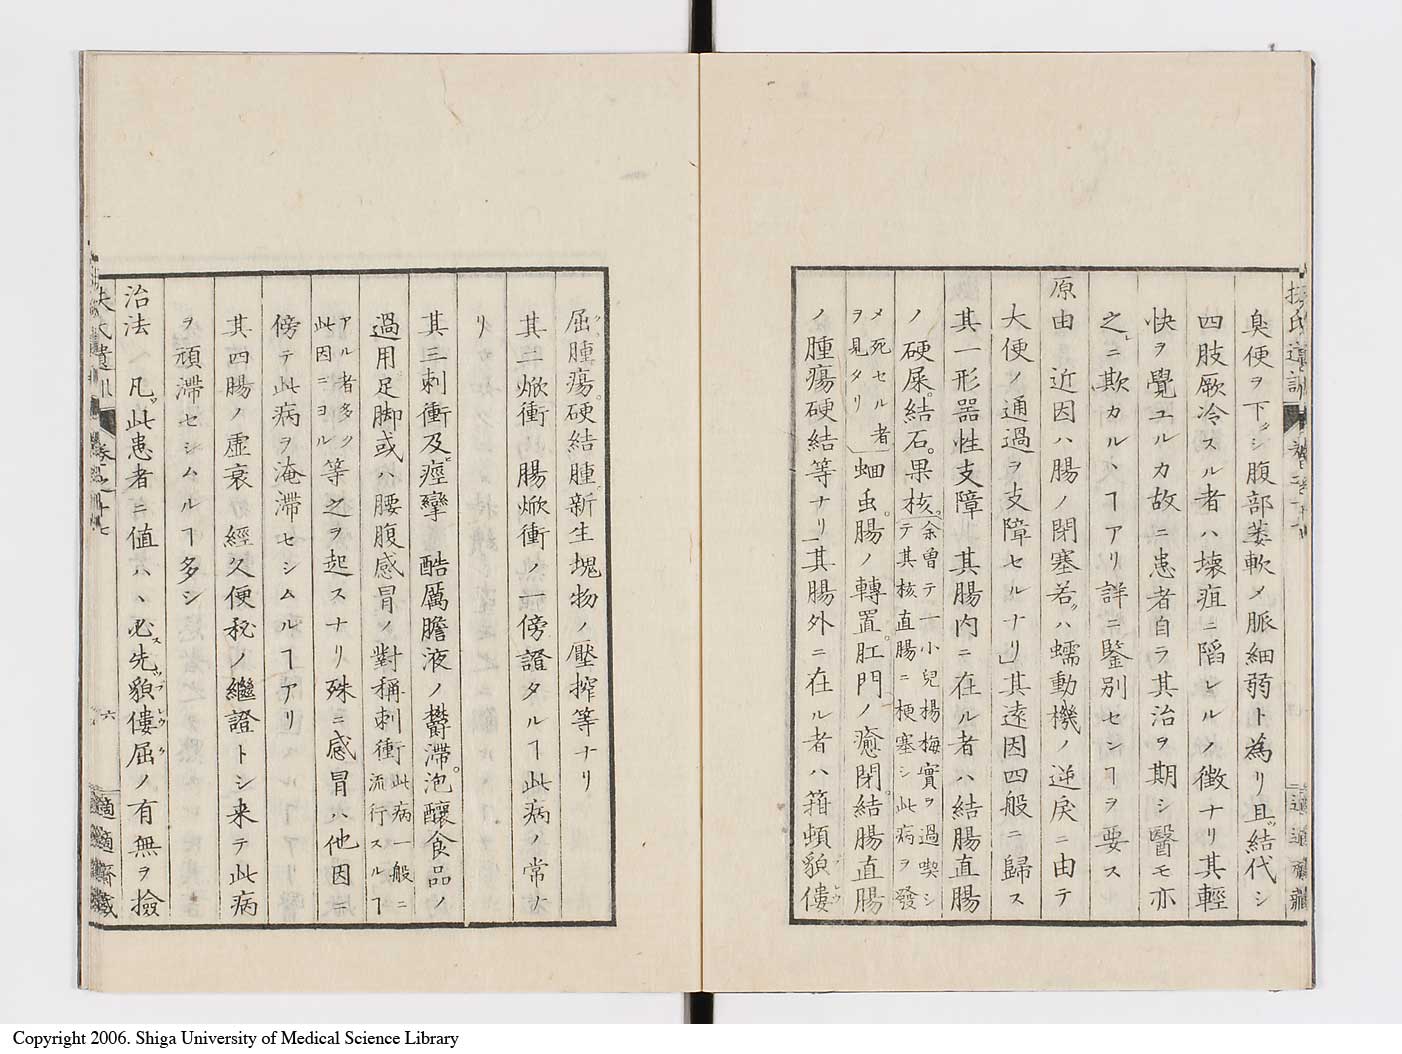 臭便ヲ下シ腹部萎軟メ脈細弱ト為リ且ツ結代シ
四肢厥冷スル者ハ壊疽ニ陷レルノ徴ナリ其輕
快ヲ覺ユルカ故ニ患者自ラ其治ヲ期シ醫モ亦
之レニ欺カルヽヿアリ詳ニ鑒別センヿヲ要ス
原由 近因ハ腸ノ閉塞若クハ蠕動機ノ逆戾ニ由テ
大便ノ通過ヲ支障セルナリ」其遠因四般ニ歸ス
其一形器性支障 其腸内ニ在ル者ハ結腸直腸
ノ硬屎。結石。果核。余曾テ一小兒楊梅實ヲ過喫シテ其核直腸ニ梗塞シ此病ヲ發
メ死セル者ヲ見タリ 蛔虫。腸ノ轉置。肛門ノ癒閉。結腸直腸
ノ腫瘍硬結等ナリ」其腸外ニ在ル者ハ箝頓貌僂
屈腫瘍。硬結腫。新生塊物ノ壓搾等ナリ
其二焮衝 腸焮衝ノ一傍證タルヿ此病ノ常ナ
リ
其三刺衝及ヒ痙攣 酷厲膽液ノ鬱滯。泡釀食品ノ
過用足脚或ハ腰腹感冒ノ對稱刺衝此病一般ニ流行スルヿ
アル者多クハ此因ニヨル等之ヲ起スナリ殊ニ感冒ハ他因ニ
傍テ此病ヲ淹滯セシムルヿアリ
其四腸ノ虚衰 經久便秘ノ繼證トシ来テ此病
ヲ頑滯セシムルヿ多シ
治法 凡ソ此患者ニ値ハヽ必ス先ツ貌僂屈ノ有無ヲ撿
扶氏遺訓
卷之十七
六
適適齋藏